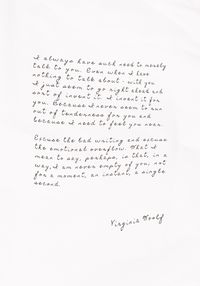 I always have such need to merely
talk to you. Even when I have
nothing to talk about - with you
I just seem to go right ahead and
sort of invent it. I invent it for
you. Because I never seem to run
out of tenderness for you and
because I need to feel you near.
Excuse the bad writing and excuse
the emotional overflow. What I
mean to say, perhaps, is that, in a
way, I am never empty of you; not
for a moment, an instant, a single
second.
Virginia Woolf